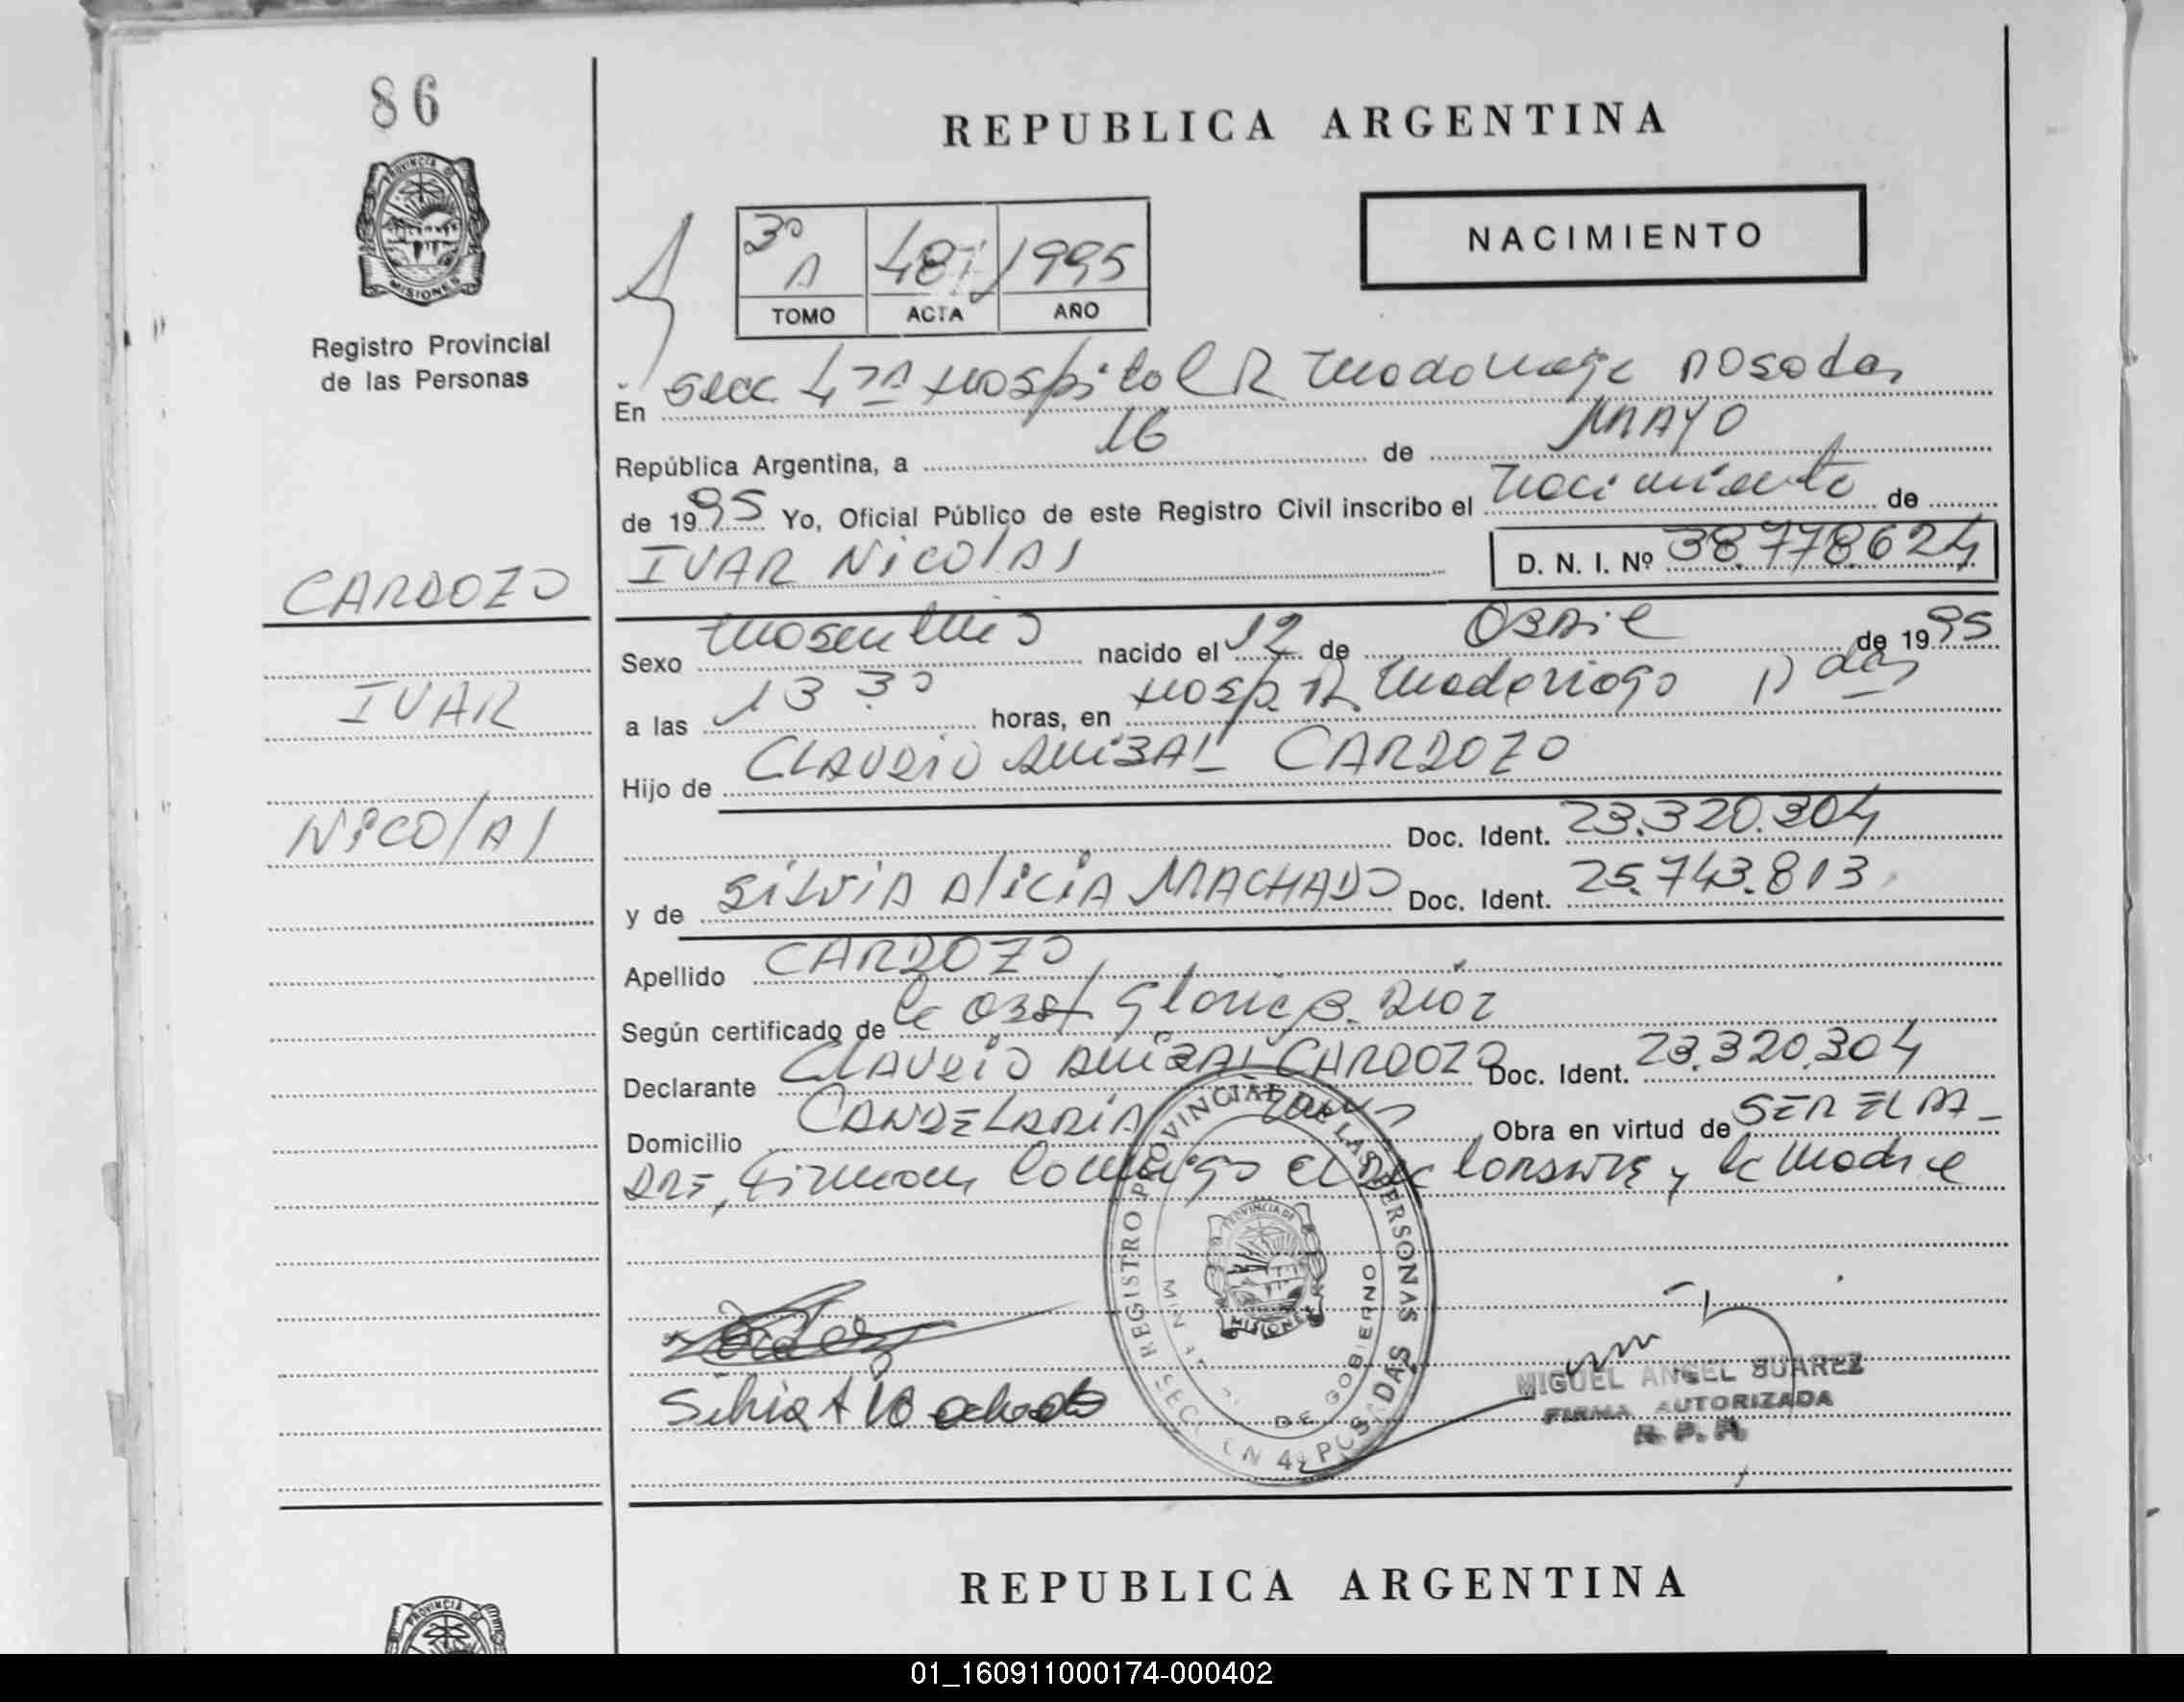 86
PROVINCIA DE
MISIONES
Registro Provincial
de las Personas
CARDOZO
IVAR
NICOLAS
REPUBLICA ARGENTINA
NACIMIENTO
3º A 487 1995
TOMO ACTA AÑO
En Secc 4ta Hospital R Madariaga Posadas
República Argentina, a 16 de MAYO
de 1995 Yo, Oficial Público de este Registro Civil inscribo el nacimiento de
IVAR NICOLAS D. N. I. Nº 38.778.624
Sexo Masculino nacido el 12 de ABRIL de 1995
a las 13 30 horas, en Hosp. R. Madariaga Pdas
Hijo de CLAUDIO ANIBAL CARDOZO
Doc. Ident. 23.320.304
y de SILVIA ALICIA MACHADO Doc. Ident. 25.743.813
Apellido CARDOZO
Según certificado de la Obst Gloria B. Diaz
Declarante CLAUDIO ANIBAL CARDOZO Doc. Ident. 23.320.304
Domicilio CANDELARIA Obra en virtud de SER EL PA-
DRE, Firman conmigo el declarante y la madre
REGISTRO PROVINCIAL DE LAS PERSONAS
SECCION 4ª POSADAS
DE GOBIERNO
PROVINCIA DE
MISIONES
Silvia A Machado
MIGUEL ANGEL SUAREZ
FIRMA AUTORIZADA
R. P. P.
REPUBLICA ARGENTINA
PROVINCIA DE
01_160911000174-000402